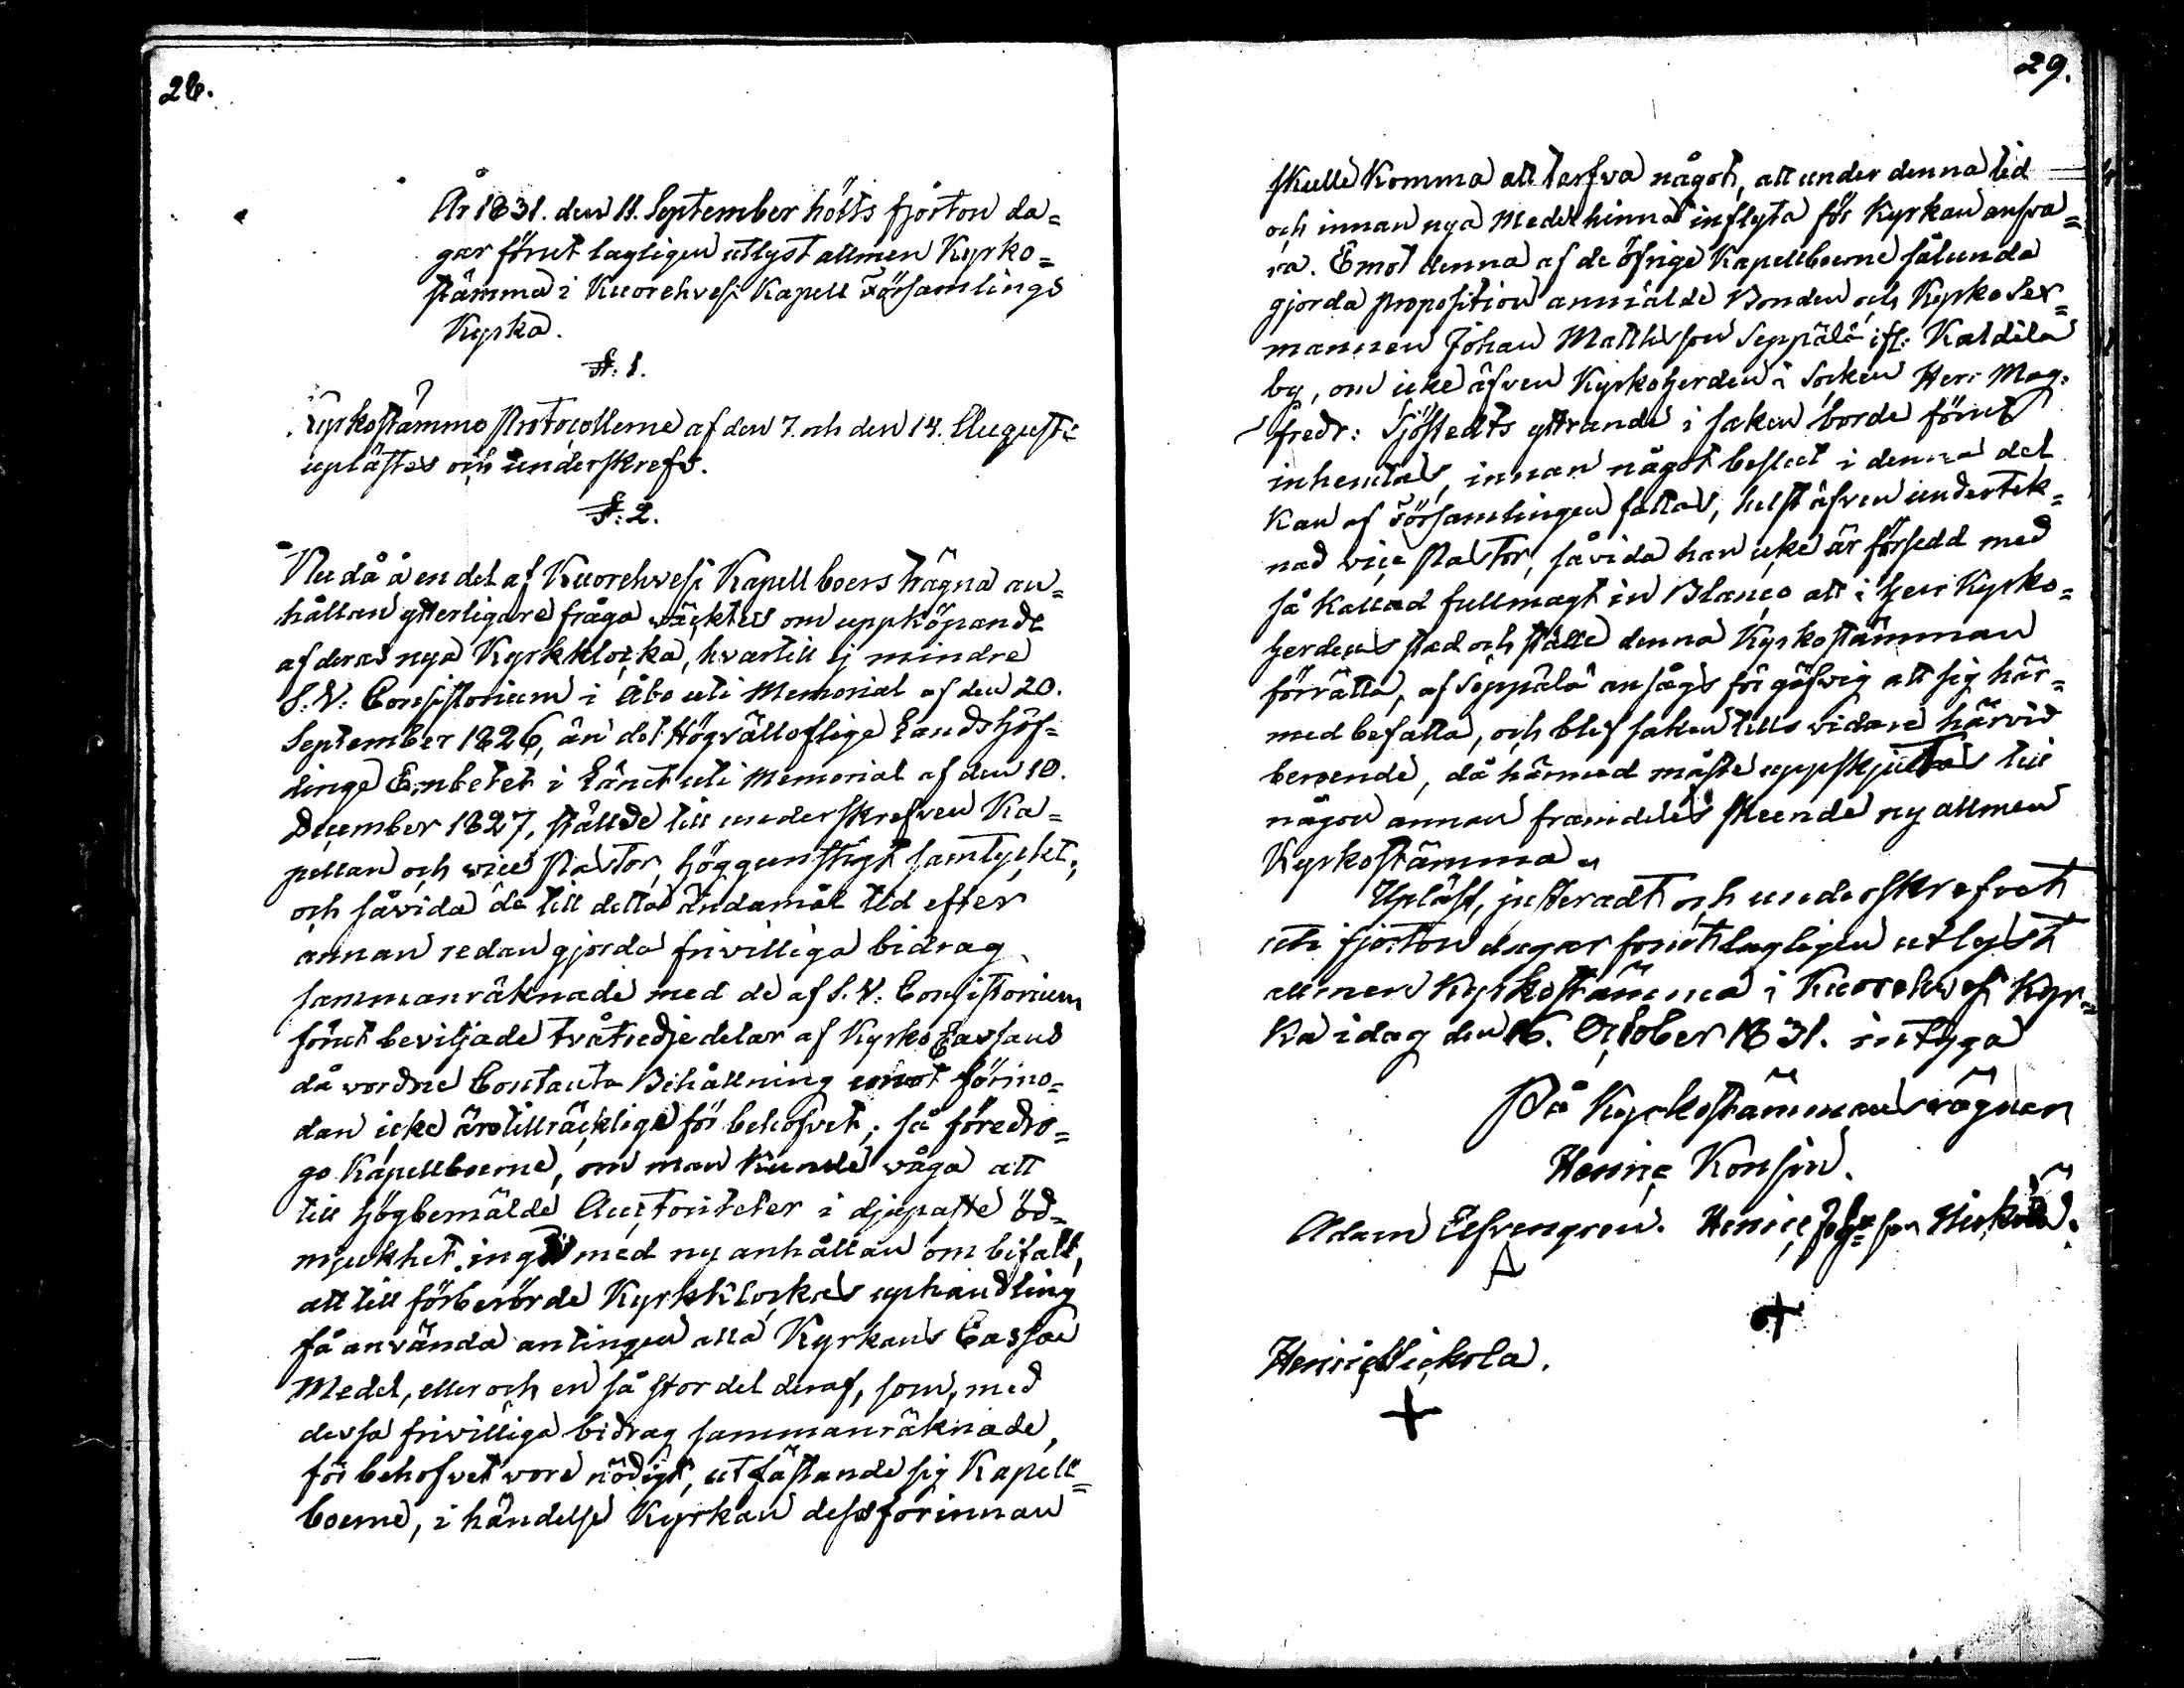 28.
År 1831. den 11. September hölts fjorton da=
gar förut lagligen utlyst allmen Kyrko=
stämma i Kuorehvesi Kapell Församlings
Kyrka.
§. 1.
Kyrkostämmo Protocollerne af den 7. och den 14. Augusti
uplästes och underskrefs.
§. 2.
Nu då å en del af Kuorehvesi Kapellboers vägna an=
hållan ytterligare fråga väcktes om uppköpande
af deras nya Kyrkklocka, hvartill ej mindre
S. V. Consistorium i Åbo uti Memorial af den 20.
September 1826, än det Högvälloflige Landshöf=
dinge Embetet i Länet uti Memorial af den 10.
December 1827, stälde till underskrefven Ka=
pellan och vice Pastor, höggunstigt samtyckt;
och såvida de till detta ändamål tid efter
annan redan gjorda frivilliga bidrag
sammanräknade med de af S. V. Consistorium
förut beviljade tvåtredjedelar af Kyrko Cassans
då vordne Contanta Behållning emot förmo=
dan icke äro tillräcklige för behofvet; så föredro=
go Kapellboerne, om man kunde våga att
till högbemälde Auctoriteter i djupaste öd=
mjukhet ingå med ny anhållan om bifall,
att till förberörde Kyrkklockas uphandling
få använda antingen alla Kyrkans Cassae
Medel, eller och en så stor del deraf, som, med
dessa frivilliga bidrag sammanräknade,
för behofvet vore nödigt, utfästande sig Kapell=
boerne, i händelse Kyrkan dessförinnan
29.
skulle komma att tarfva något, att under denna tid
och innan nya Medel hinna inflyta för Kyrkan ansva=
ra. Emot denna af de öfrige Kapellboerne sålunda
gjorda proposition anmälde Bonden och Kyrko Sex=
mannen Johan Mattsson Seppälä ifr: Kaldila
by, om icke äfven Kyrkoherden i Socken Herr Mag.
Fredr: Sjöstedts yttrande i saken borde förut
inhemtas, innan något beslut i denna del
kan af Församlingen fattas, helst äfven undertek=
nad vice Pastor, såvida han icke är försedd med
så kallad fullmagt in Blanco att i Herr Kyrko=
herdens stad och ställe denna Kyrkostämman
förrätta, af Seppälä ansågs för gäfvig att sig här=
med befatta, och blef saken tills vidare härvid
beroende, då härmed måste uppskjutas till
någon annan framdeles skeende ny allmen
Kyrkostämma.
Upläst, justeradt och underskrefvet
uti fjorton dagar förut lagligen utlyst
allmen Kyrkostämma i Kuorehvesi Kyr=
ka idag den 16. October 1831. intyga
På Kyrkostämmans vägnar
Henric Konsin.
Adam Elfvengren. Henric Joh: son Niskala.
Henric Nickola.